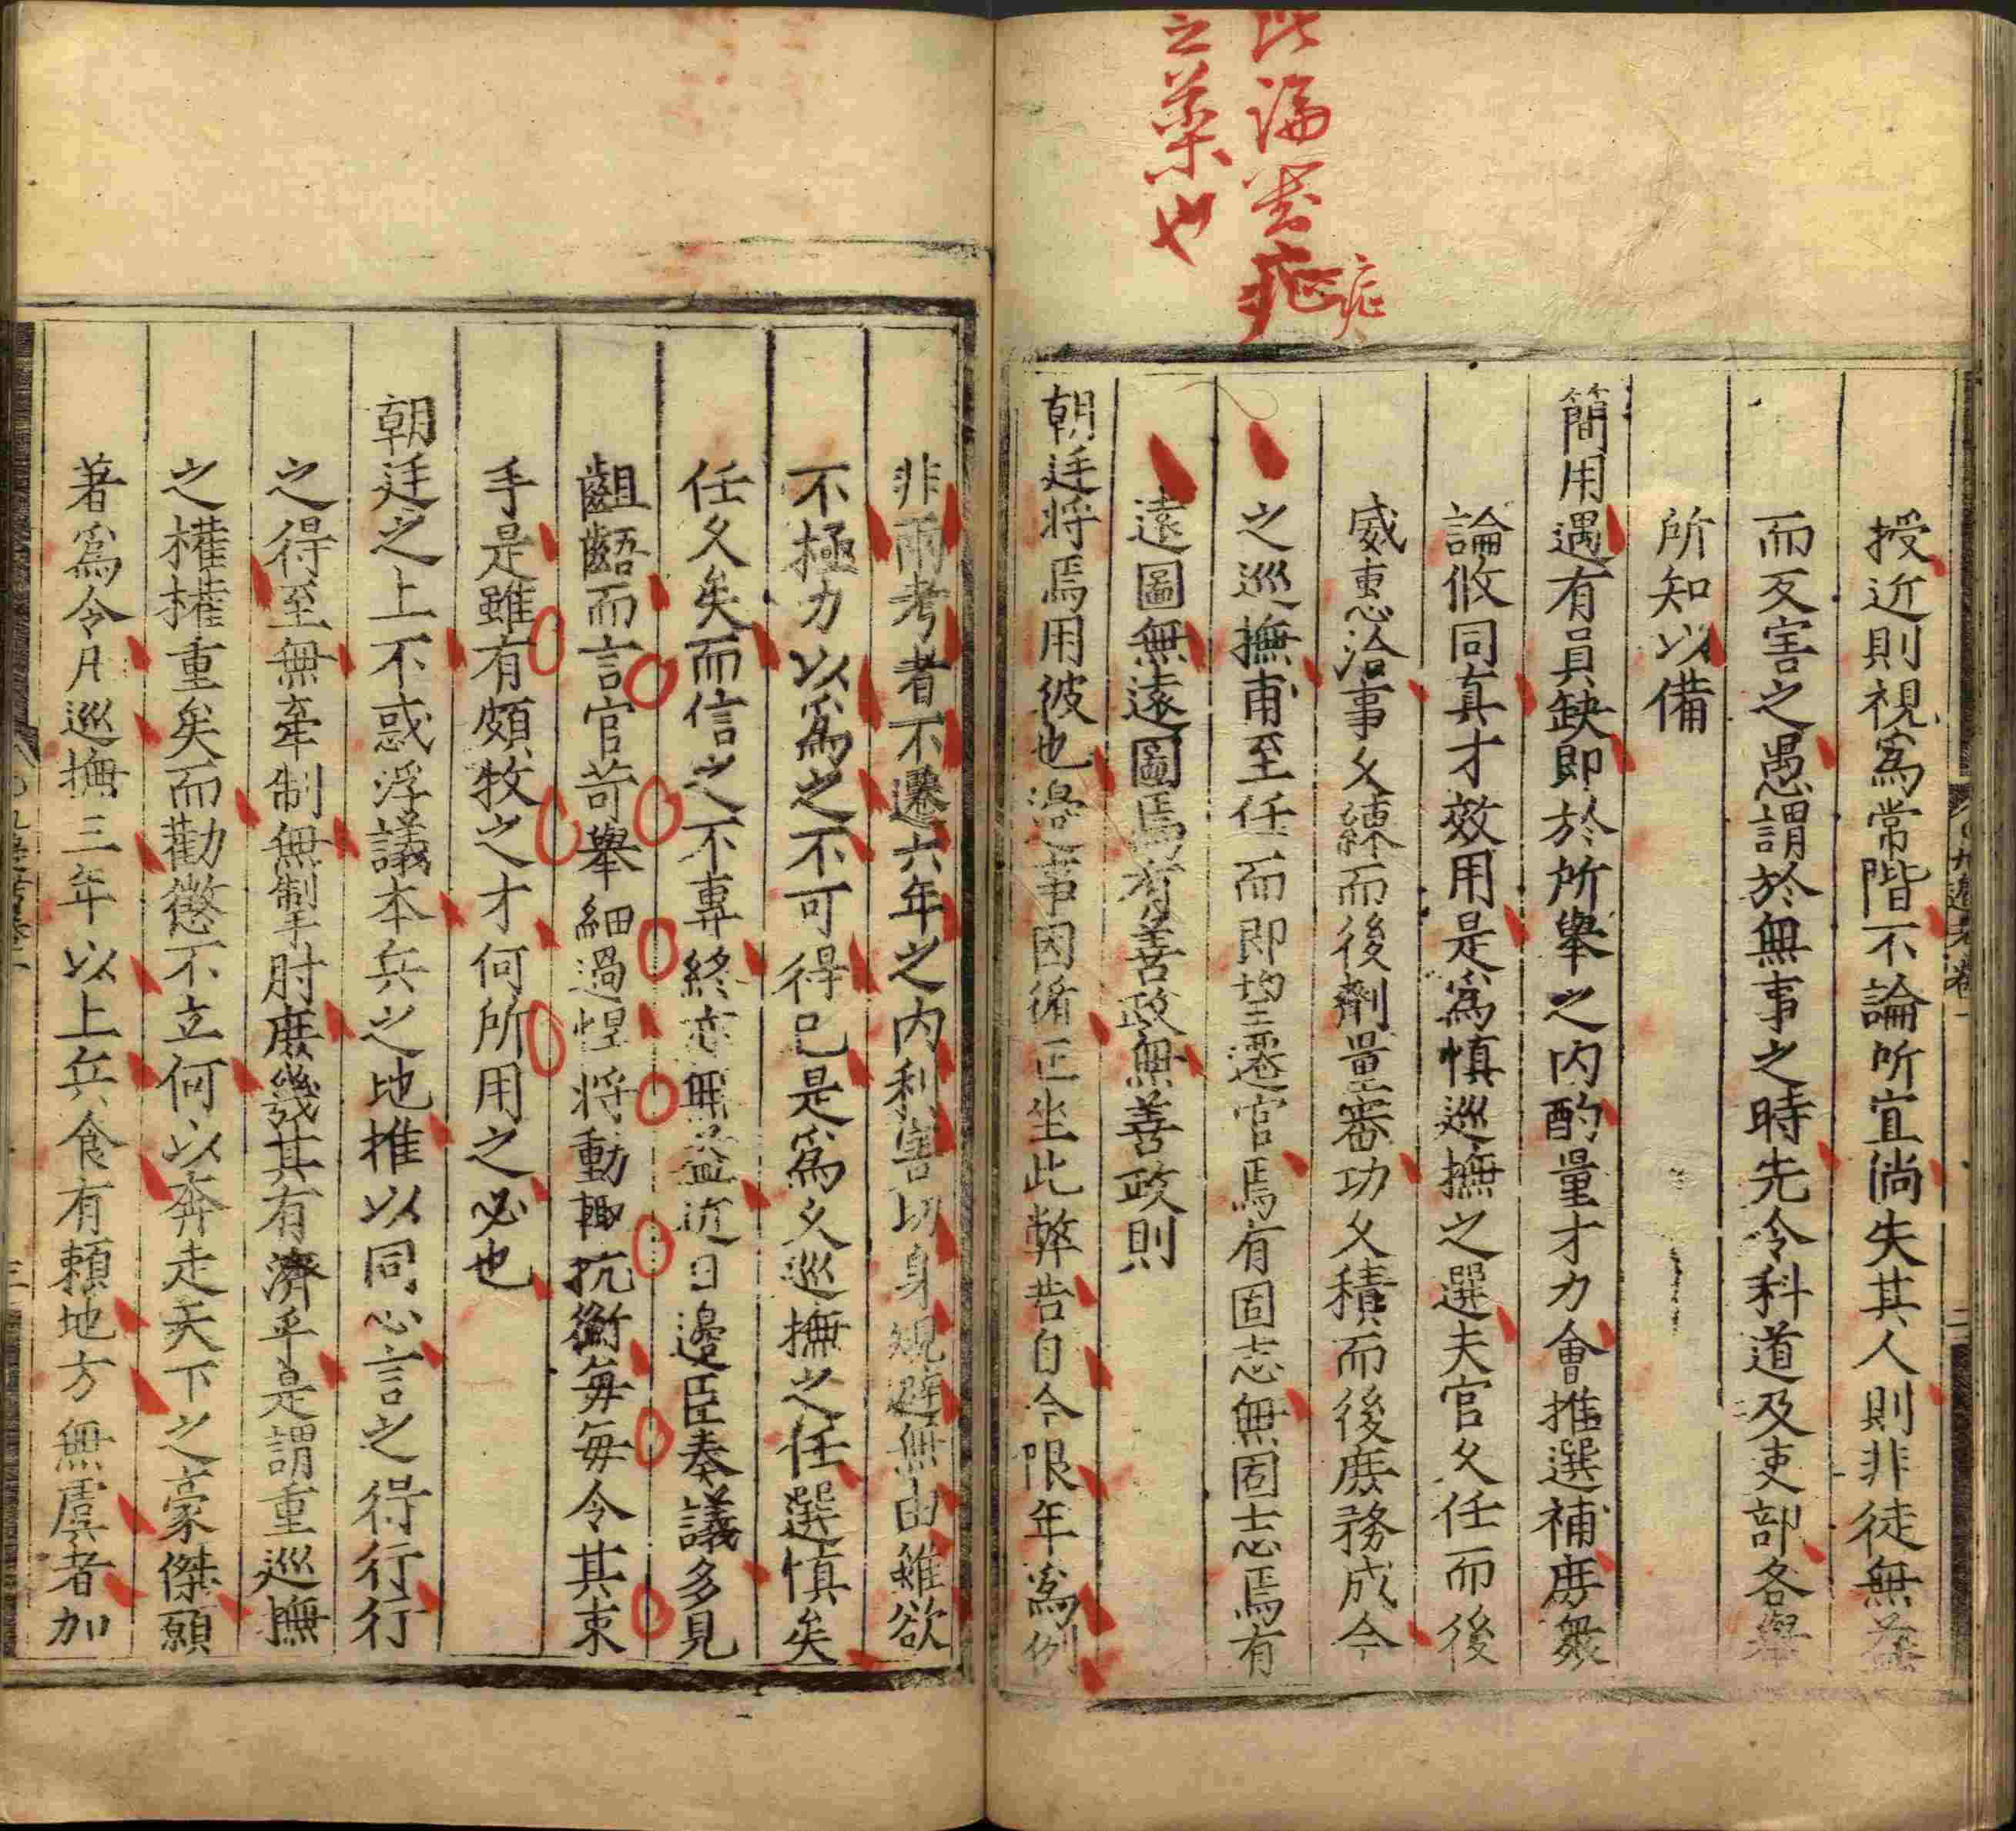 此論對症
症
之藥也
授近則視爲常階不論所宜倘失其人則非徒無益
而反害之愚謂於無事之時先令科道及吏部各舉
所知以備
簡用遇有員缺即於所舉之内酌量才力會推選補庶衆
論攸同真才效用是爲慎巡撫之選夫官久任而後
威惠洽事久練而後劑量審功久積而後庶務成今
之巡撫甫至任而即望遷官焉有固志無固志焉有
遠圖無遠圖焉有善政無善政則
朝廷將焉用彼也邊事因循正坐此弊昔自今限年爲例
九邊考卷一
二
非兩考者不遷六年之内利害切身規避無由雖欲
不極力以爲之不可得已是爲久巡撫之任選慎矣
任久矣而信之不專終亦無益近日邊臣奏議多見
齟齬而言官苛舉細過悝將動輒抗衡每每令其束
手是雖有頗牧之才何所用之必也
朝廷之上不惑浮議本兵之地推以同心言之得行行
之得至無牽制無掣肘庶幾其有濟乎是謂重巡撫
之權權重矣而勸懲不立何以奔走天下之豪傑願
著爲令凡巡撫三年以上兵食有賴地方無虞者加
三